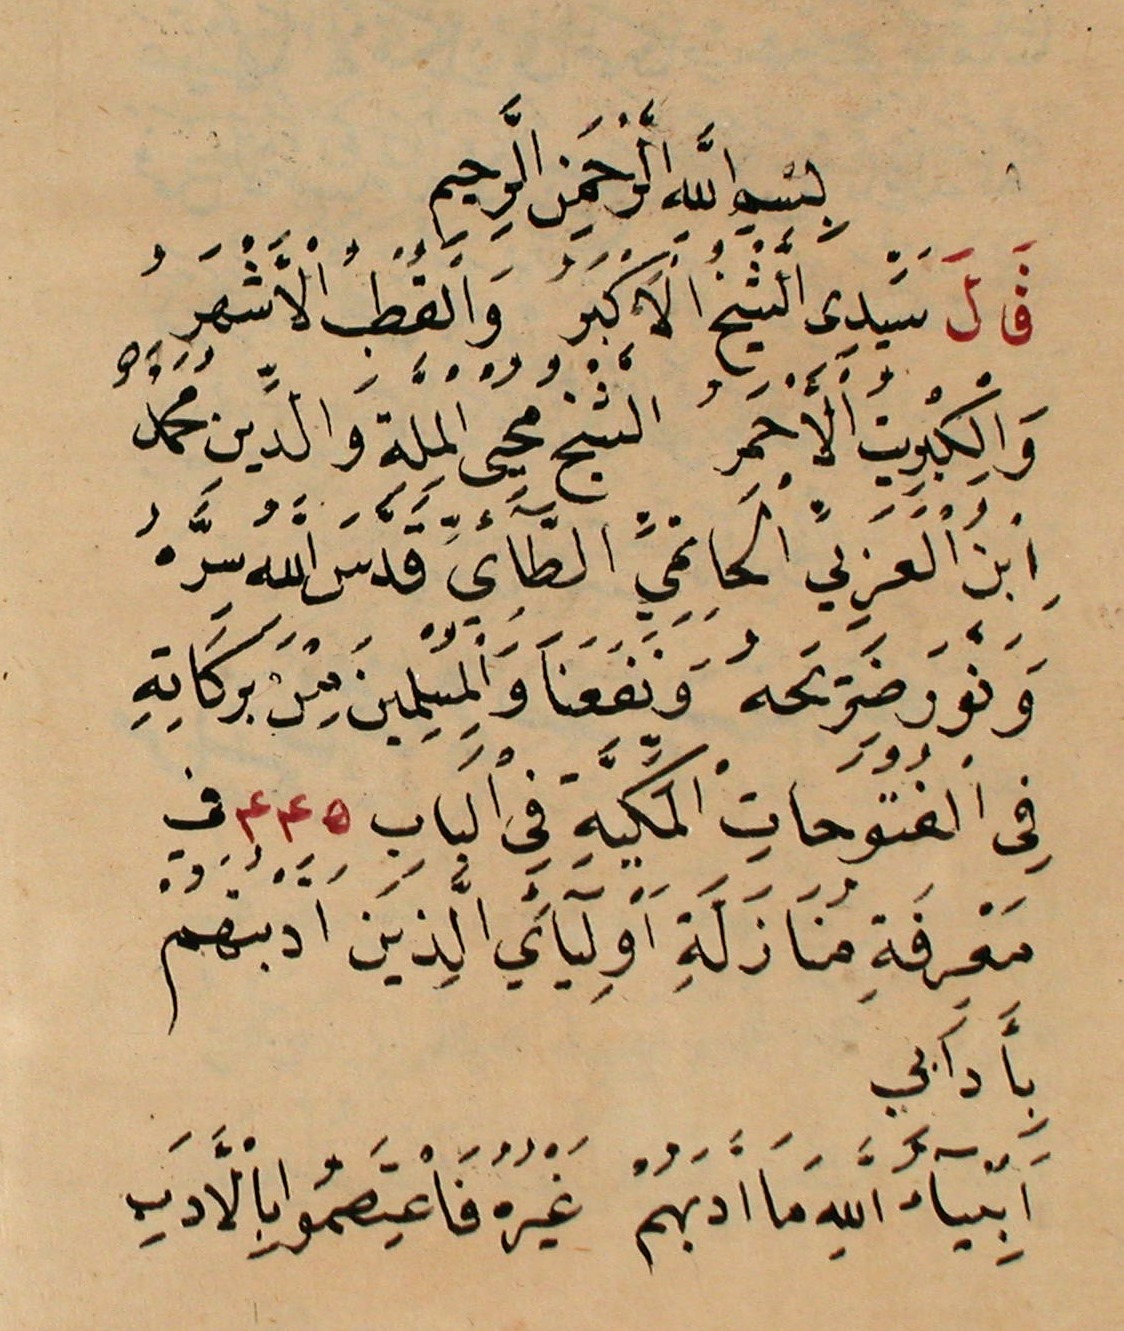 بِسْمِ اللَّهِ الرَّحْمَنِ الرَّحِيمِ
قَالَ سَيِّدِى الشَّيْخُ الْأَكْبَرُ وَالْقُطْبُ الْأَشْهَرُ
وَالْكِبْرِيتُ الْأَحْمَرُ الشَّيْخُ مُحْيِى الْمِلَّةِ وَالدِّينِ مُحَمَّدُ
اِبْنُ الْعَرَبِيِّ الْحَاتِمِيِّ الطَّآئِيِّ قَدَّسَ اللَّهُ سِرَّهُ
وَنَوَّرَ ضَرِيحَهُ وَنَفَعَنَا وَالْمُسْلِمِينَ مِنْ بَرَكَاتِهِ
فِى الْفُتُوحَاتِ الْمَكِّيَّةِ فِى الْبَابِ ۴۴۵ فِي
مَعْرِفَةِ مُنَازَلَةِ أَوْلِيَآئِي الَّذِينَ اَدَّبْتُهُمْ
بِأَدَابِي
اَنْبِيَآءُ اللَّهِ مَا اَدَّبَهُمْ غَيْرُهُ فَاعْتَصَمُوا بِالْأَدَبِ